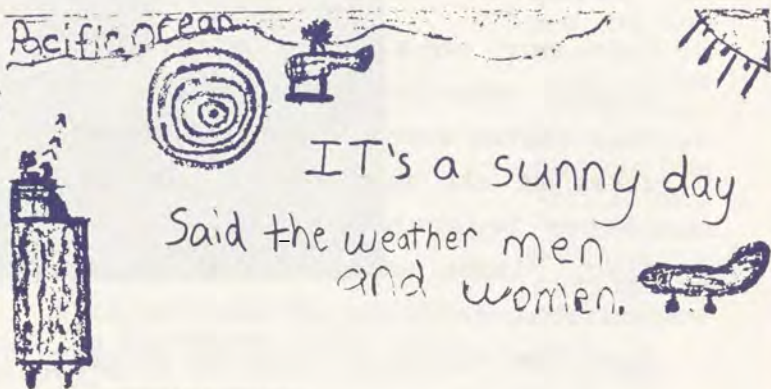 Pacific Ocean
IT's a sunny day
Said the weather men
and women.